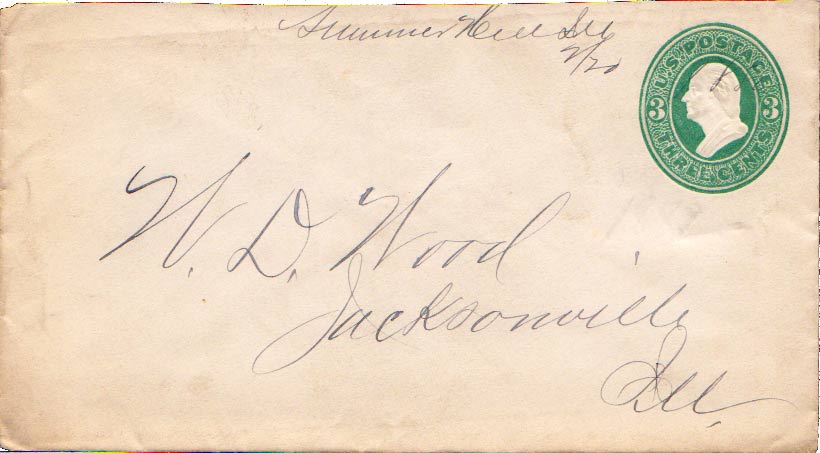 Summer Hill Ills
2/20
U.S. POSTAGE
3 3
THREE CENTS
W. D. Wood
Jacksonville
Ill.